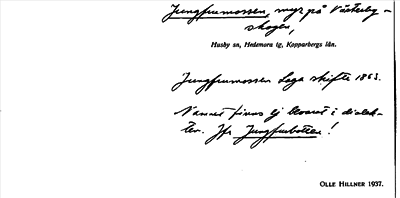 Jungfrumossen, myr på Västerby-
skogen,
Husby sn, Hedemora tg, Kopparbergs län.
Jungfrumossen Laga skifte 1863.
Namnet finns ej bevarat i dialek-
ten. Jfr Jungfrubotten!
OLLE HILLNER 1937.